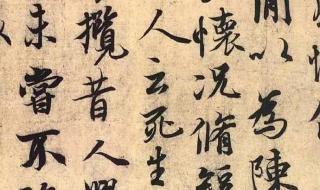 閒以為陳
懷況脩短
人云死生
攬昔人興
未嘗不